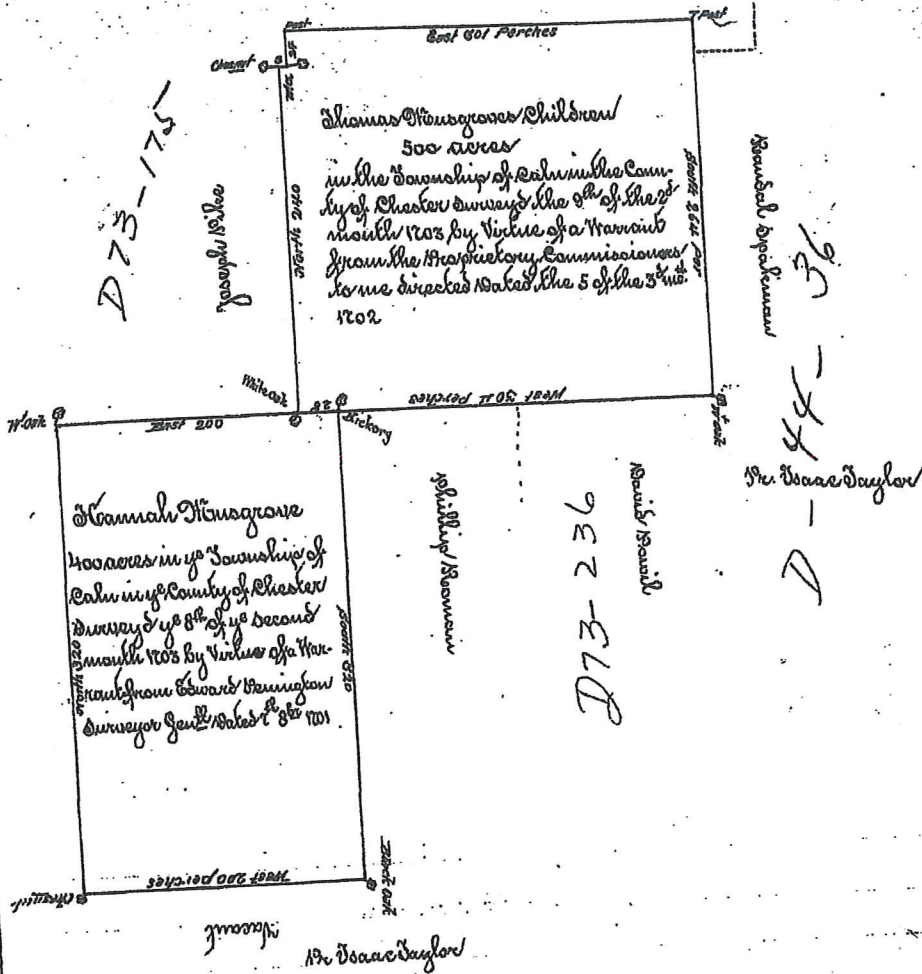 Post
East 301 Perches
Post
Chesnut
D73-175
Joseph Pike
North 240
Thomas Musgroves Children
500 acres
in the Township of Caln in the Coun-
ty of Chester Survey'd the 9th of the 2d
month 1703 by Virtue of a Warrant
from the Proprietary Commissioners
to me directed Dated the 5 of the 3d mo.
1702
South 264 Per
Randal Spakman
D-44-36
Pr. Isaac Taylor
White oak
W. Oak
East 200
28
Hickory
West 304 Perches
Hannah Musgrove
400 acres in ye Township of
Caln in ye County of Chester
Survey'd ye 8th of ye second
month 1703 by Virtue of a War-
rant from Edward Penington
Surveyor Genll Dated 2d 8br 1701
North 320
South 320
Phillip Roman
D73-236
David Powil
West 200 perches
Black Oak
Chesnut
Vacant
Pr Isaac Taylor